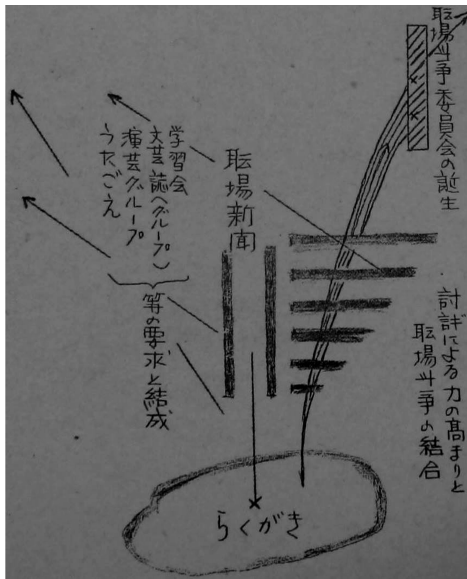 耺場斗争委員会の誕生
討議による力の高まりと
耺場斗争の結合
耺場新聞
学習会
文芸誌(グループ)
演芸グループ
うたごえ
等の要求と結成
らくがき